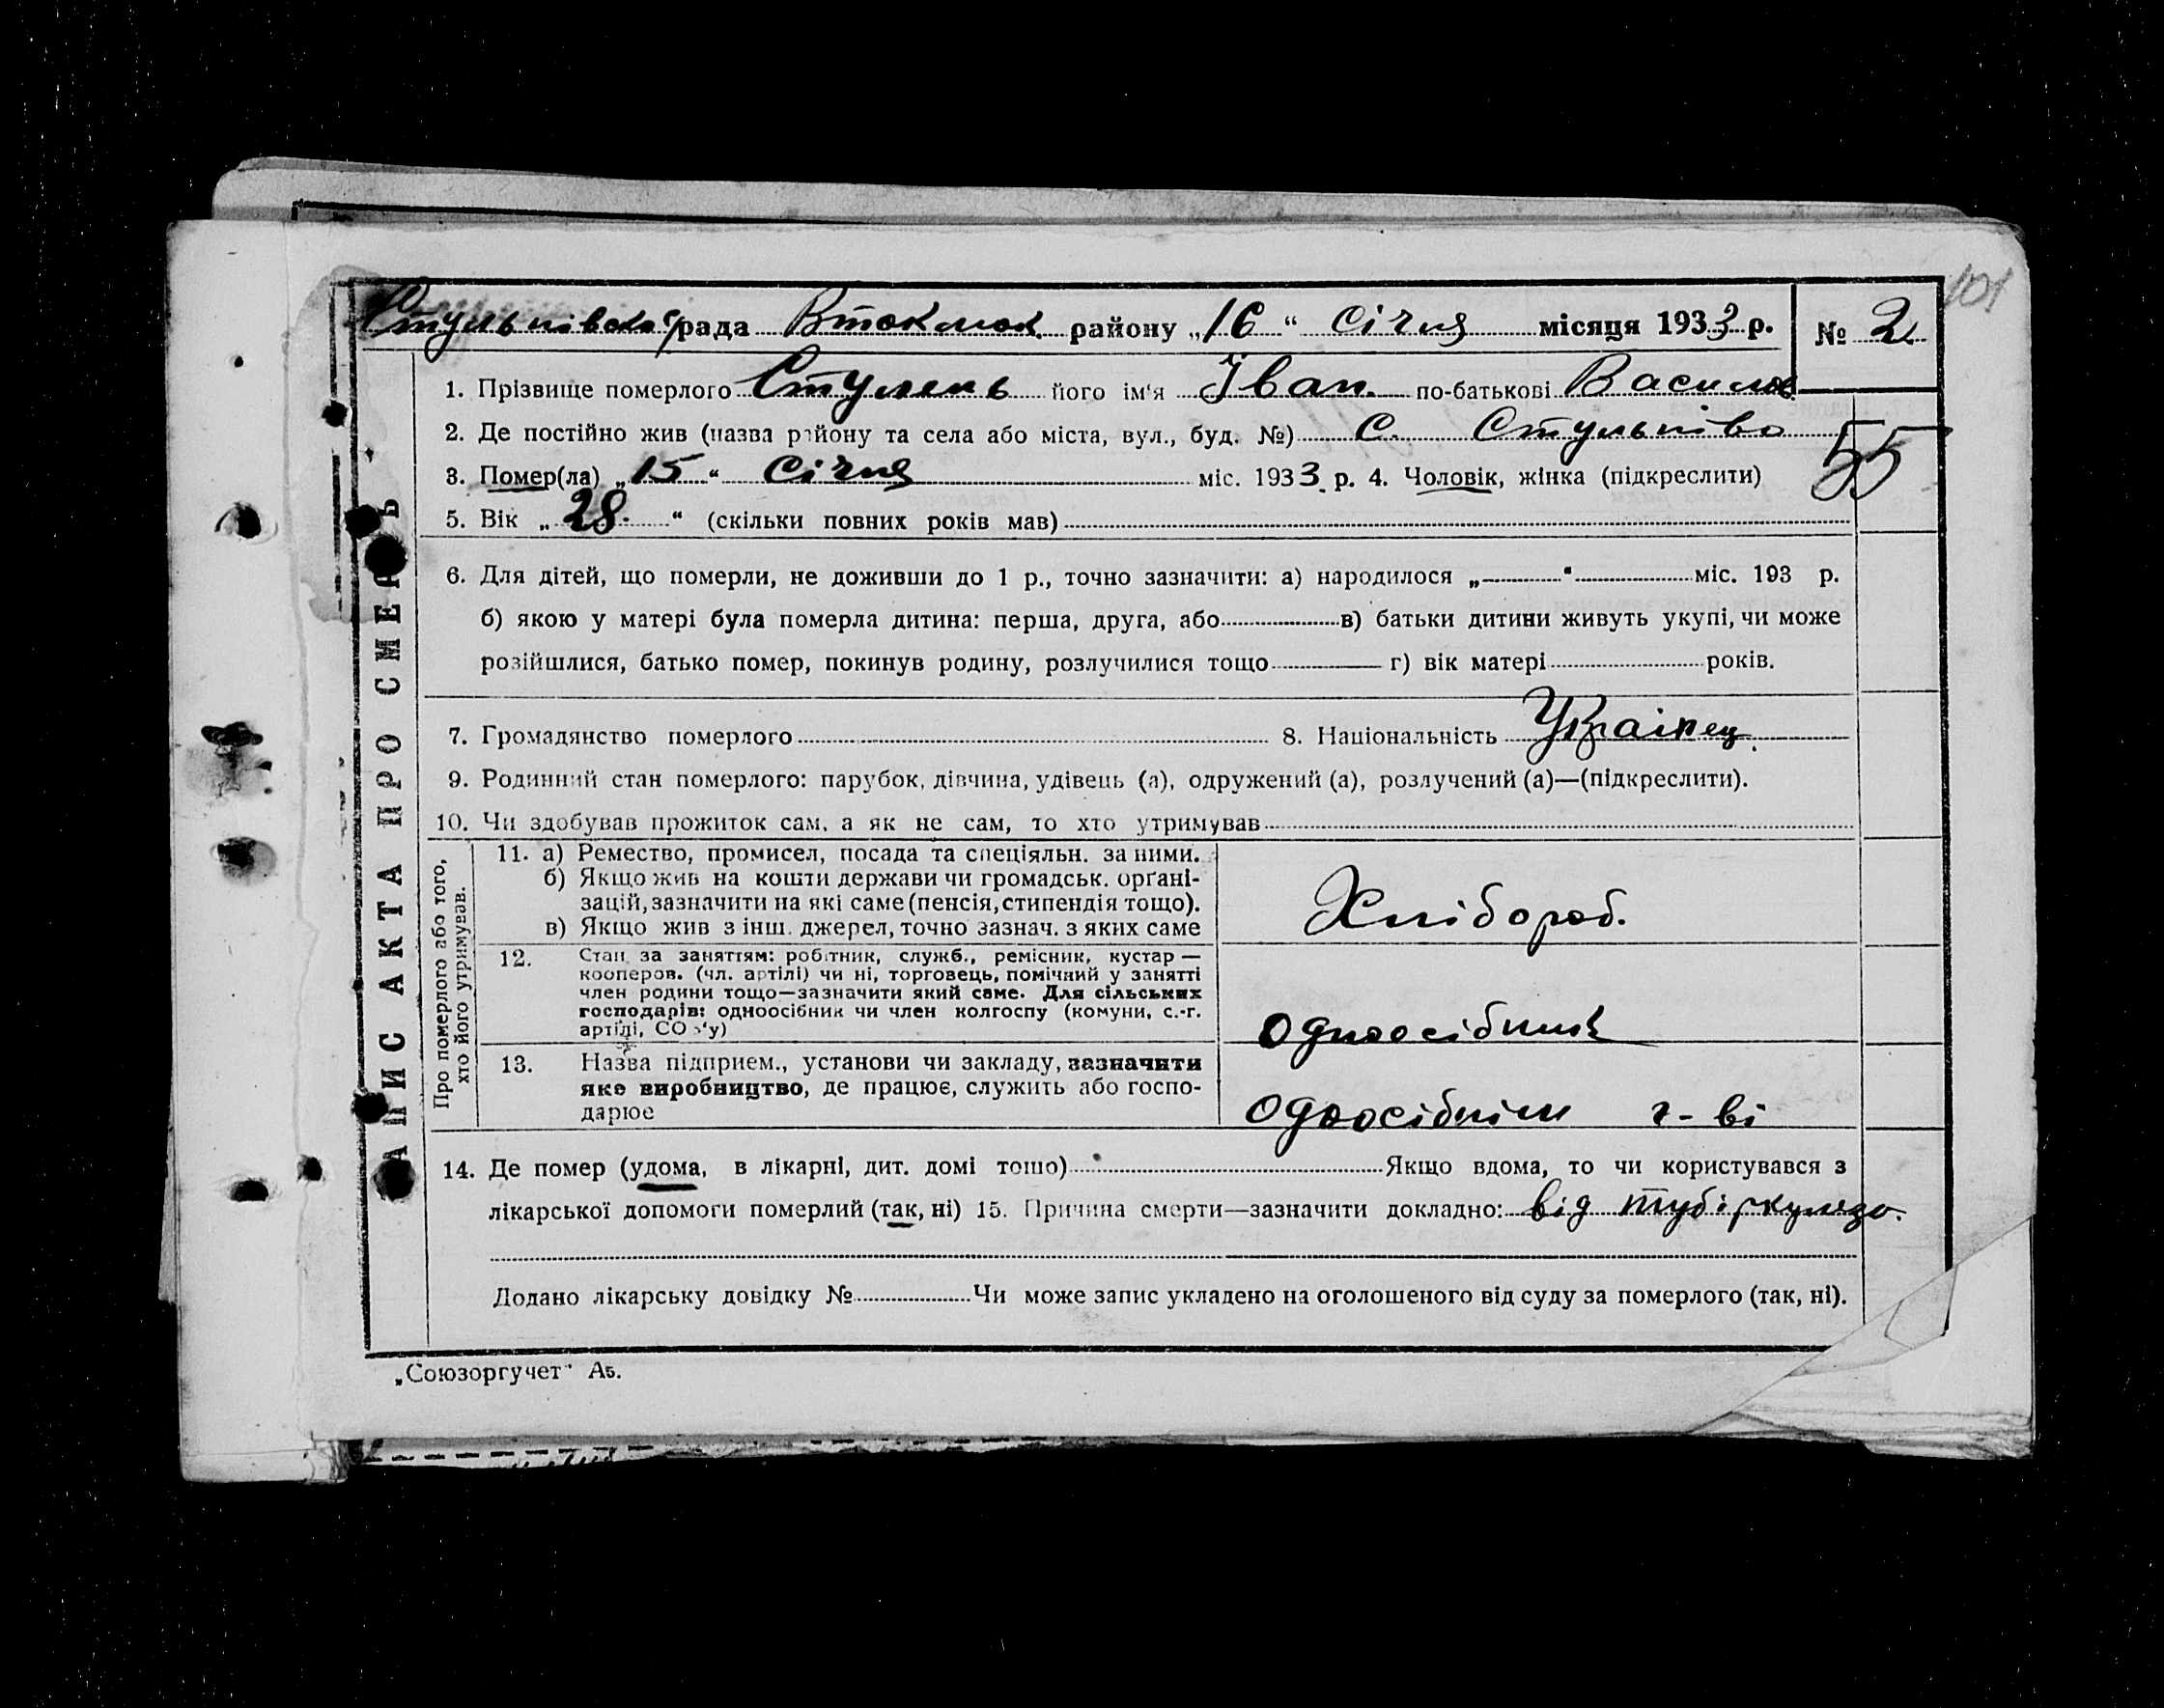 101
Стульнівська с/рада Втокмок району „16“ січня місяця 1933 р. № 2
1. Прізвище померлого Стулень його ім'я Іван. по-батькові Василов
2. Де постійно жив (назва району та села або міста, вул., буд. №) С. Стульніво
55
3. Помер(ла) „15“ Січня міс. 1933 р. 4. Чоловік, жінка (підкреслити)
5. Вік „28.“ (скільки повних років мав)
6. Для дітей, що померли, не доживши до 1 р., точно зазначити: а) народилося „—“ міс. 193 р.
б) якою у матері була померла дитина: перша, друга, або в) батьки дитини живуть укупі, чи може
розійшлися, батько помер, покинув родину, розлучилися тощо г) вік матері років.
7. Громадянство померлого 8. Національність Українец.
9. Родинний стан померлого: парубок, дівчина, удівець (а), одружений (а), розлучений (а)—(підкреслити).
10. Чи здобував прожиток сам, а як не сам, то хто утримував
АПИС АКТА ПРО СМЕР Ь
Про померлого або того,
хто його утримував.
11. а) Ремество, промисел, посада та спеціяльн. за ними.
б) Якщо жив на кошти держави чи громадськ. орґані-
зацій, зазначити на які саме (пенсія, стипендія тощо).
в) Якщо жив з інш. джерел, точно зазнач. з яких саме
Хлібороб.
12. Стан за заняттям: робітник, служб., ремісник, кустар —
кооперов. (чл. артілі) чи ні, торговець, помічний у занятті
член родини тощо—зазначити який саме. Для сільських
господарів: одноосібник чи член колгоспу (комуни, с.-г.
артілі, СОЗ'у)
одноосібник
13. Назва підприєм., установи чи закладу, зазначити
яке виробництво, де працює, служить або госпо-
дарює
одноосібнім г-ві
14. Де помер (удома, в лікарні, дит. домі тощо) Якщо вдома, то чи користувався з
лікарської допомоги померлий (так, ні) 15. Причина смерти—зазначити докладно: від тубіркульозо.
Додано лікарську довідку № Чи може запис укладено на оголошеного від суду за померлого (так, ні).
„Союзоргучет“ А5.